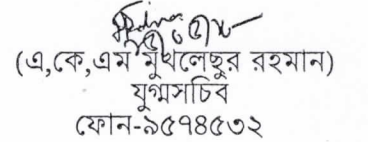 (এ,কে,এম মুখলেছুর রহমান)
যুগ্মসচিব
ফোন-৯৫৭৪৫৩২